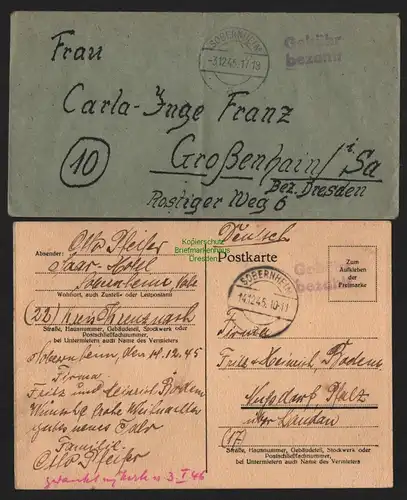 Frau
SOBERNHEIM
-3.12.45.17-18
Gebühr
bezahlt
Carla-Inge Franz
(10)
Großenhain/i. Sa
Bez. Dresden
Rostiger Weg 6
Kopierschutz
Briefmarkenhaus
Dresden
Otto Pfeifer
Absender:
Saar-Hotel
Sobernheim, Nahe
Wohnort, auch Zustell- oder Leitpostamt
(22) Kreis Kreuznach
Straße, Hausnummer, Gebäudeteil, Stockwerk oder
Postschließfachnummer,
bei Untermietern auch Name des Vermieters
Sobernheim, den 12.45
Firma
Fritz und Heinrich Bodem
Wünsche frohe Weihnachten
gutes neues Jahr
Familie
Otto Pfeifer
3. I. 46
Deutsch
Postkarte
Gebühr
bezahlt
Zum
Aufkleben
der
Freimarke
SOBERNHEIM
14.12.45.10-11
Firma
Fritz & Heinrich, Bodem
Nußdorf, Pfalz
über Landau
(17)
Straße, Hausnummer, Gebäudeteil, Stockwerk oder
Postschließfachnummer,
bei Untermietern auch Name des Vermieters